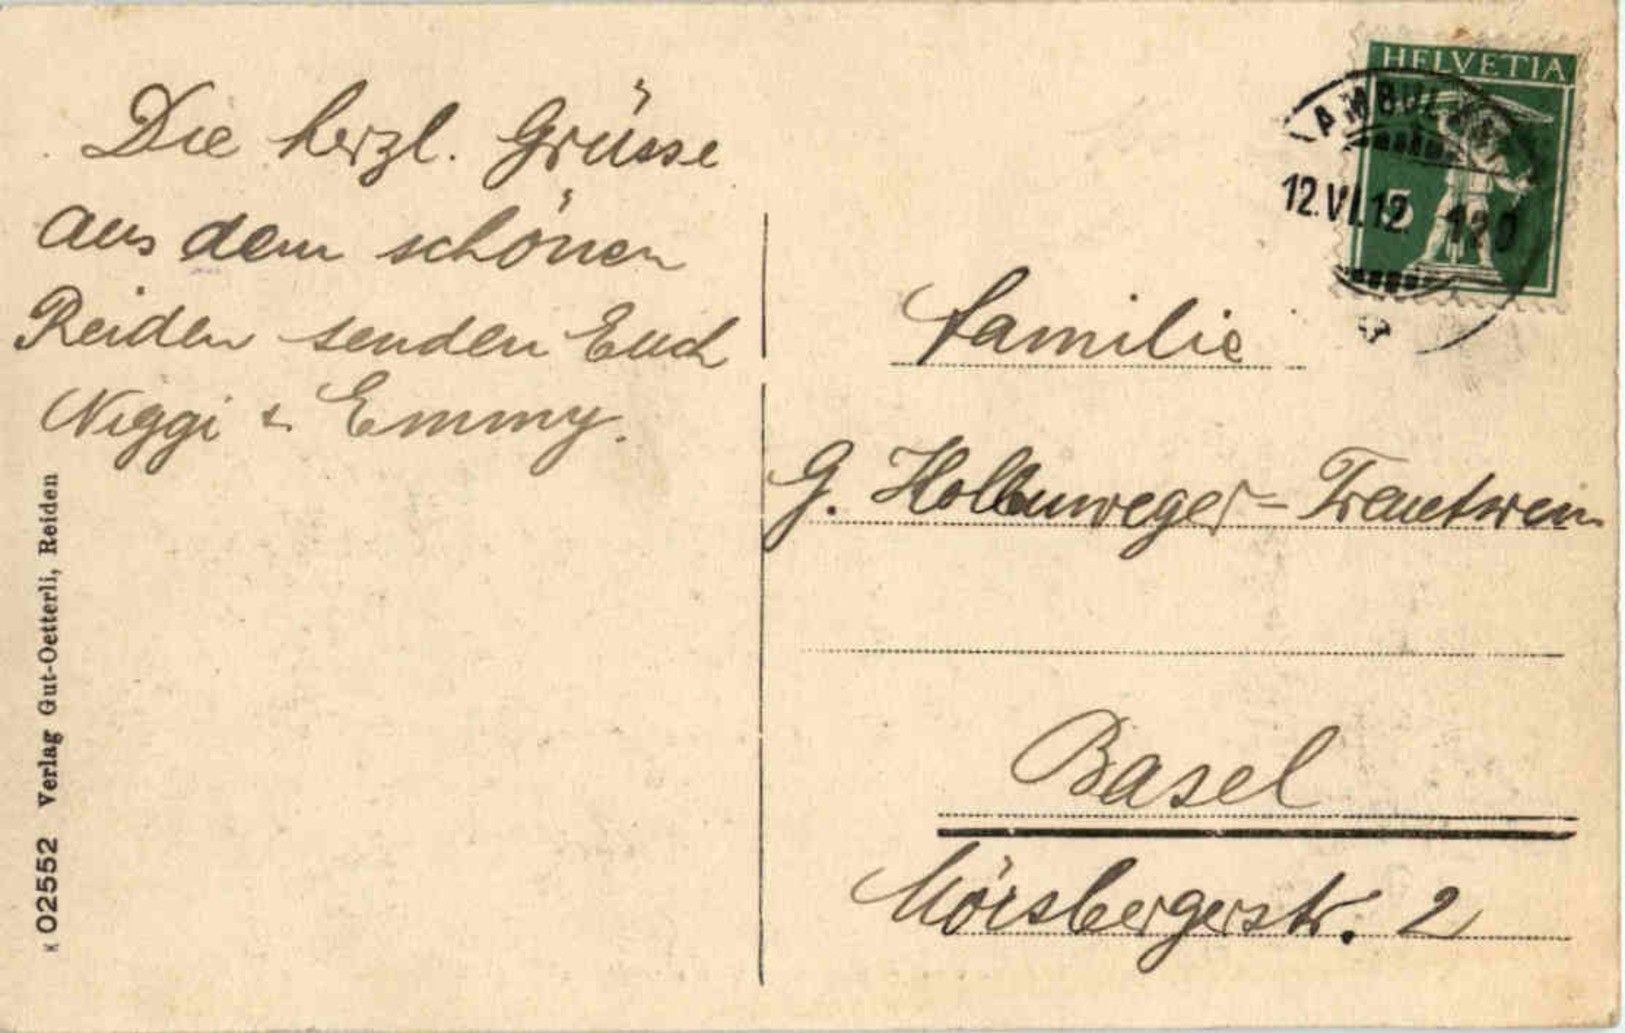 Die herzl. Grüsse
aus dem schönen
Reiden senden Euch
Niggi & Emmy.
K 02552 Verlag Gut-Oetterli, Reiden
HELVETIA
5
AMBULANT
12.VI.12 120
Familie
G. Hollenweger-Trautwein
Basel
Mörsbergerstr. 2